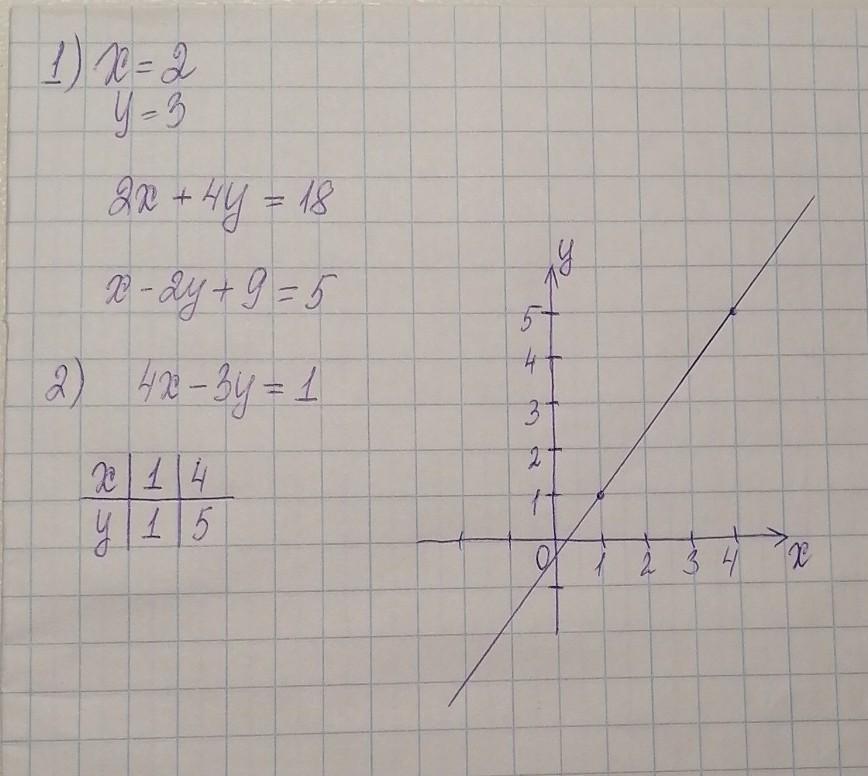 1) x = 2
y = 3
2x + 4y = 18
x - 2y + 9 = 5
2) 4x - 3y = 1
x | 1 | 4
y | 1 | 5
y
5
4
3
2
1
0 1 2 3 4 x